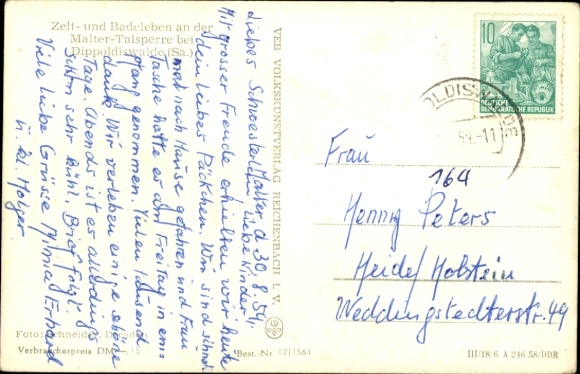 Zelt- und Badeleben an der
Malter-Talsperre bei
Dippoldiswalde (Sa.)
Malter d. 30.8.59.
Liebes Schwesterlein, liebe Kinder!
Mit grosser Freude erhielten wir heute
dein liebes Päckchen. Wir sind schnell
mal nach Hause gefahren und Frau
Tasche hatte es am Freitag in
genommen. Vielen tausend
dank. Wir verleben einige schöne
Tage. Abends ist es allerdings
schon sehr kühl. Brief folgt.
Viele liebe Grüsse Erhard
u. kl. Holger
Foto: Schneider,
Verbraucherpreis DM -,15
VEB VOLKSKUNSTVERLAG REICHENBACH i. V.
Best.-Nr. 12/1561
10
DEUTSCHE
DEMOKRATISCHE REPUBLIK
OLDISWALDE
59.-11
Frau
164
Henny Peters
Heide/Holstein
Weddingstedterstr. 49
III/18/6 A 246/58/DDR